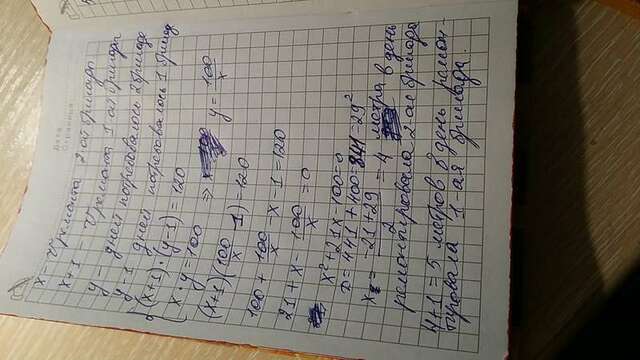 Дата
Страница
x – ч ремонта 2-ой бригады
x+1 – ч ремонта 1 ой бригады
y – дней потребовалось 2 бригаде
y-1 дней потребовалось 1 бригад
{ (x+1)·(y-1) = 120
x·y=100 ⇒ y = 100/x
(x+1)(100/x - 1)=120
100 + 100/x - x - 1 = 120
21 + x - 100/x = 0
x²+21x-100=0
D = 441 + 400 = 841 = 29²
x = (-21+29)/2 = 4 метра в день
ремонтировала 2-ая бригада
4+1 = 5 метров в день ремон-
тировала 1-ая бригада.